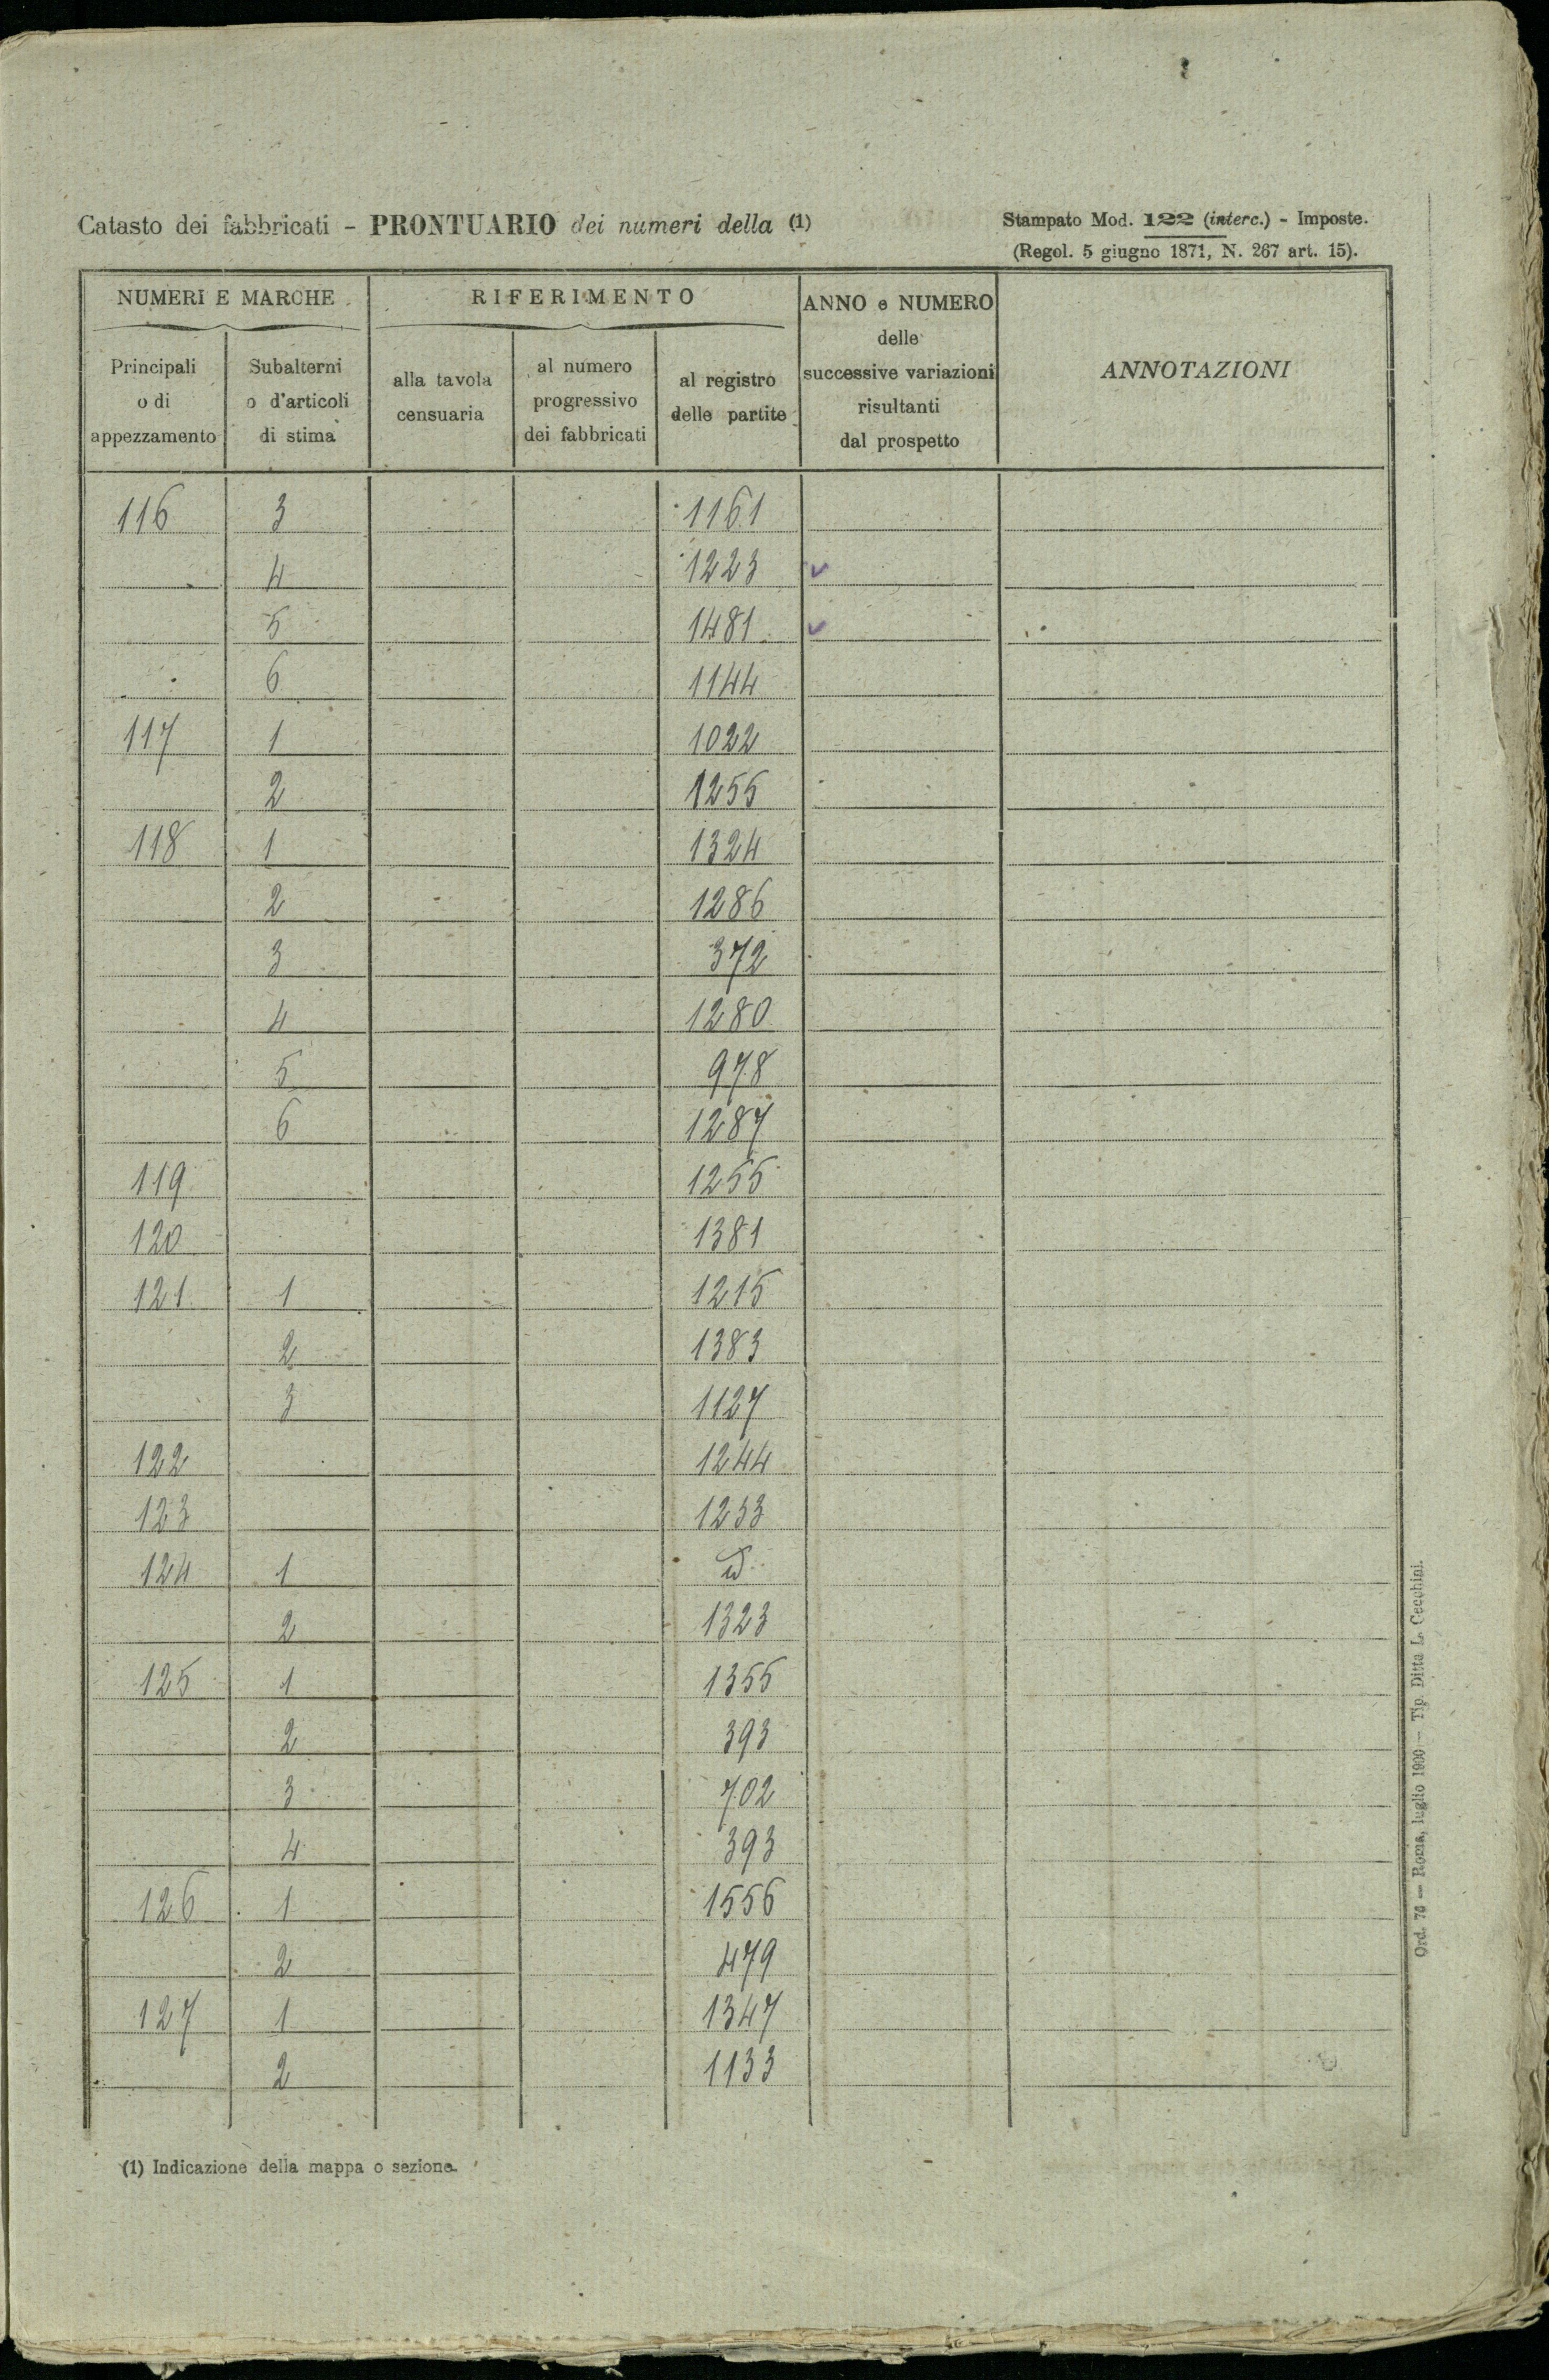 Catasto dei fabbricati - PRONTUARIO dei numeri della (1)
Stampato Mod. 122 (interc.) - Imposte.
(Regol. 5 giugno 1871, N. 267 art. 15).
NUMERI E MARCHE
RIFERIMENTO
ANNO e NUMERO
delle
successive variazioni
risultanti
dal prospetto
ANNOTAZIONI
Principali
o di
appezzamento
Subalterni
o d'articoli
di stima
alla tavola
censuaria
al numero
progressivo
dei fabbricati
al registro
delle partite
116 3 1161
4 1223 ✓
5 1481 ✓
6 1144
117 1 1022
2 1255
118 1 1324
2 1286
3 372
4 1280
5 978
6 1287
119 1255
120 1381
121 1 1215
2 1383
3 1127
122 1244
123 1233
124 1 id
2 1323
125 1 1355
2 393
3 702
4 393
126 1 1556
2 479
127 1 1347
2 1133
(1) Indicazione della mappa o sezione.
Ord. 76 — Roma, luglio 1900 — Tip. Ditta L. Cecchini.